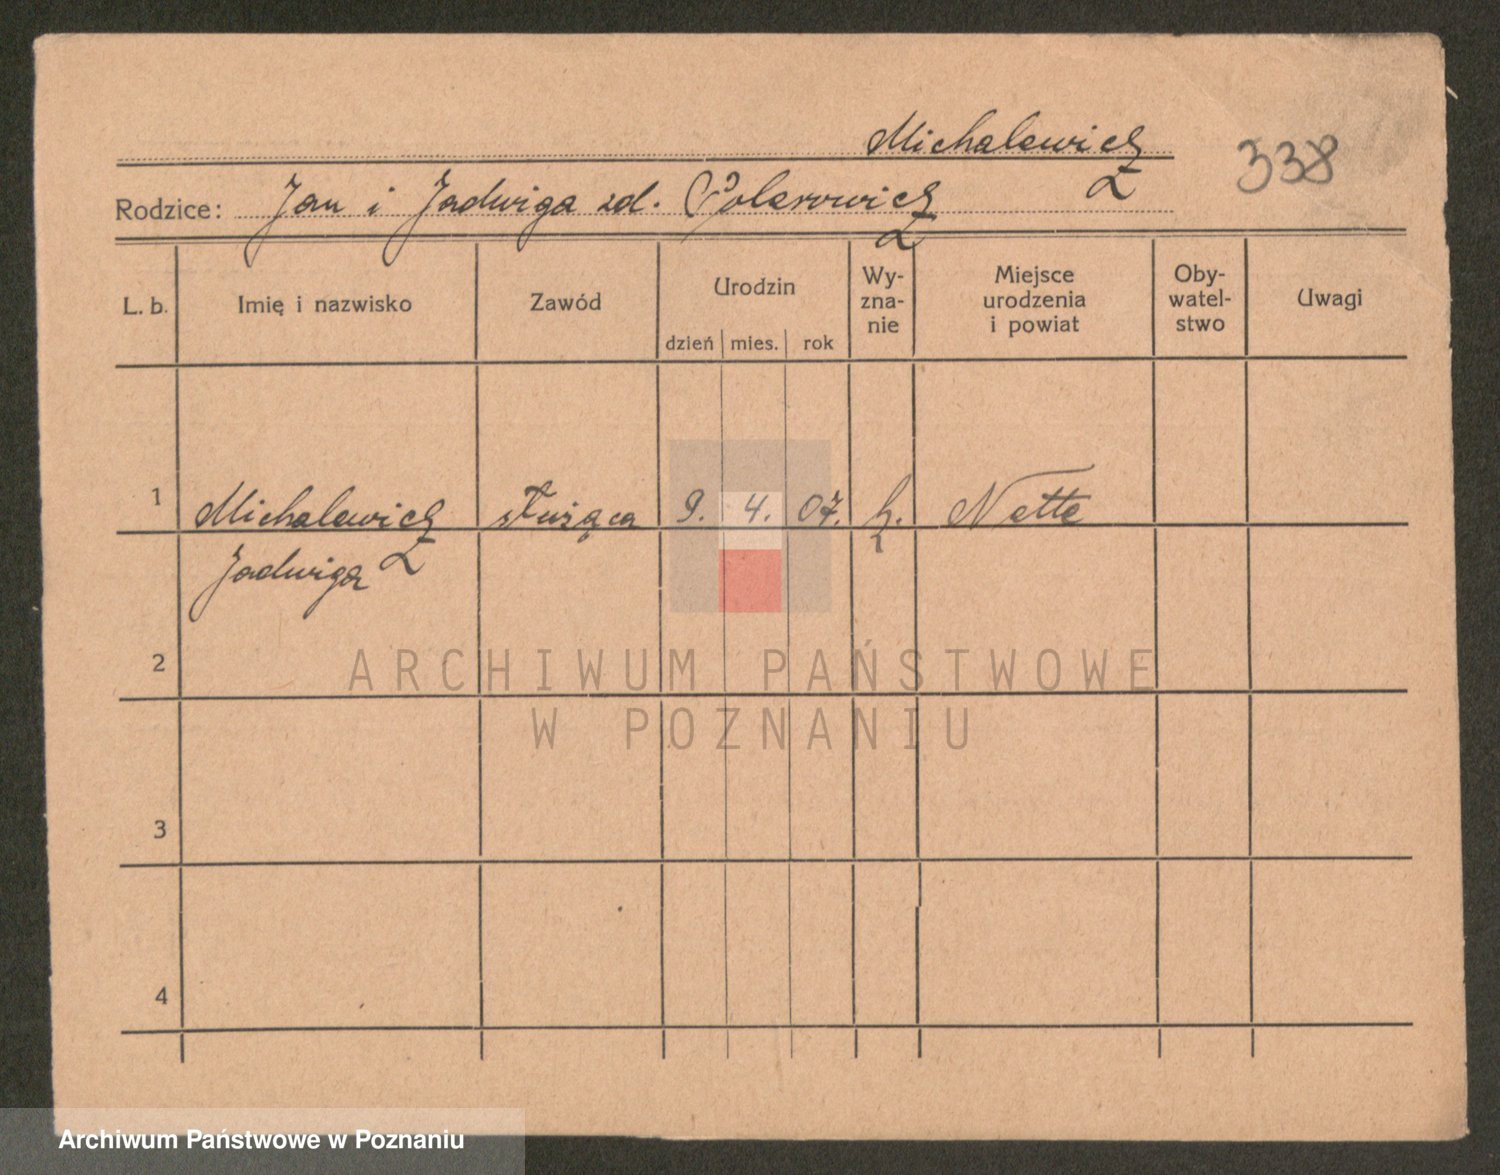 Michalewicz
338
Rodzice: Jan i Jadwiga zd.
L. b.
Imię i nazwisko
Zawód
Urodzin
dzień mies. rok
Wy-
zna-
nie
Miejsce
urodzenia
i powiat
Oby-
watel-
stwo
Uwagi
1 Michalewicz służąca 9. 4. 07. Nette
Jadwiga
2
ARCHIWUM PAŃSTWOWE
W POZNANIU
3
4
Archiwum Państwowe w Poznaniu